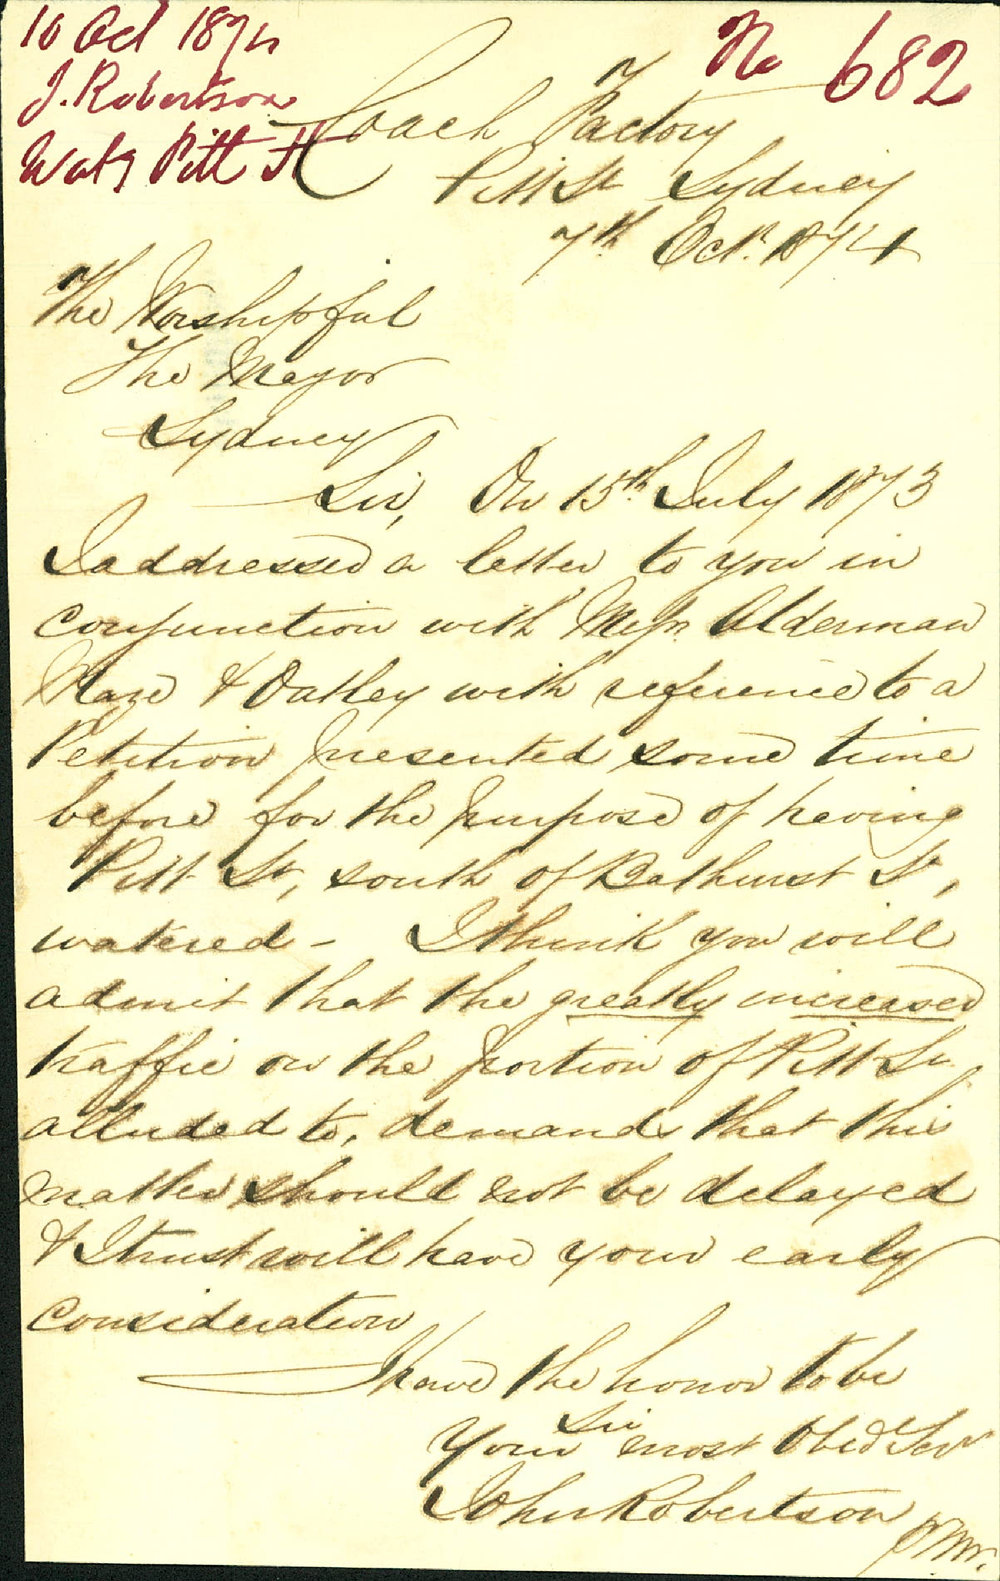 10 Oct 1874
J. Robertson
Watg Pitt St
No 682
Coach Factory
Pitt St Sydney
7th Oct. 1874
The Worshipful
The Mayor
Sydney
Sir, On 15th July 1873
I addressed a letter to you in
conjunction with Messrs. Alderman
Maze & Oatley with reference to a
Petition presented some time
before for the purpose of having
Pitt St, south of Bathurst St,
watered - I think you will
admit that the greatly increased
traffic on the portion of Pitt St.
alluded to, demands that this
matter should not be delayed
& I trust will have your early
consideration
I have the honor to be
Sir
Your most Obed Serv
John Robertson